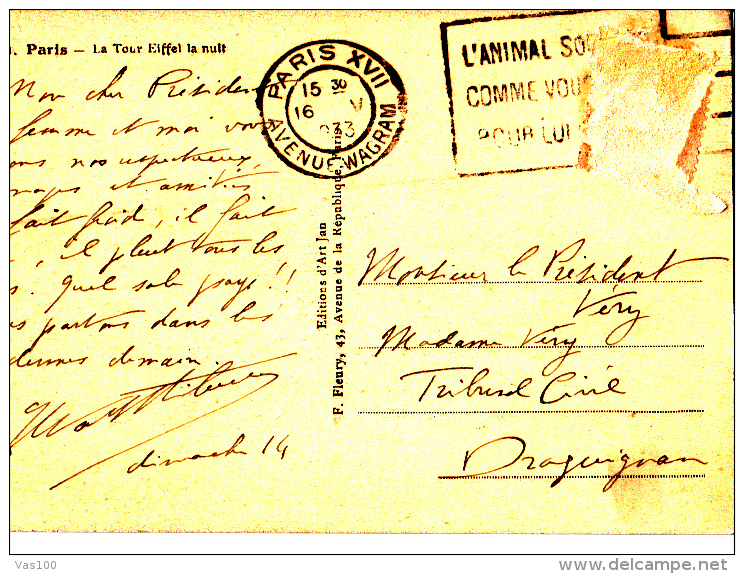 Paris – La Tour Eiffel la nuit
PARIS XVII
15 30
16 V
33
AVENUE WAGRAM
L'ANIMAL SO
COMME VOUS
POUR LUI
Mon cher Président
femme et moi vous
ons nos respectueux
mages et amitiés
fait froid, il fait
, il pleut tous les
s. Quel sale pays !!
s partons dans les
demain.
dimanche 14
Editions d'Art Jan
F. Fleury, 43, Avenue de la République, Paris
Monsieur le Président
Véry
Madame Véry
Tribunal Civil
Draguignan
Vas100
delcampe.net